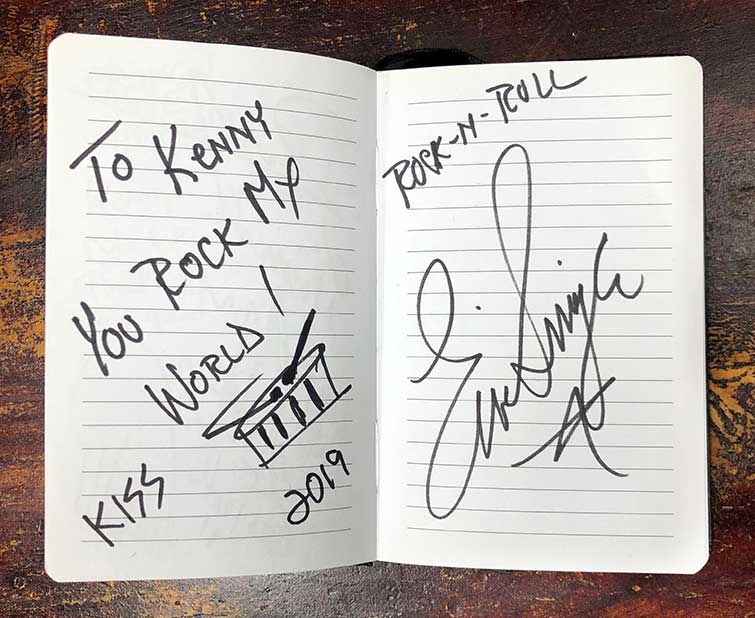 To Kenny
You Rock My
World!
KISS
2019
Rock-N-Roll
Eric Singer